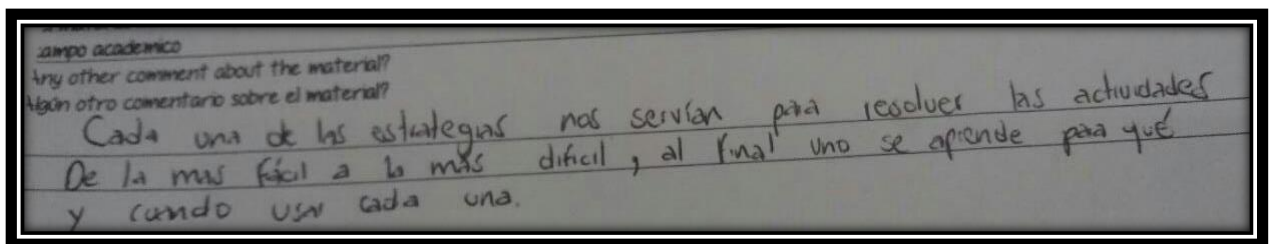 campo academico
Any other comment about the material?
Algún otro comentario sobre el material?
Cada una de las estrategias nos servían para resolver las actividades
De la mas fácil a la más dificil, al final uno se aprende para qué
y cuando usar cada una.